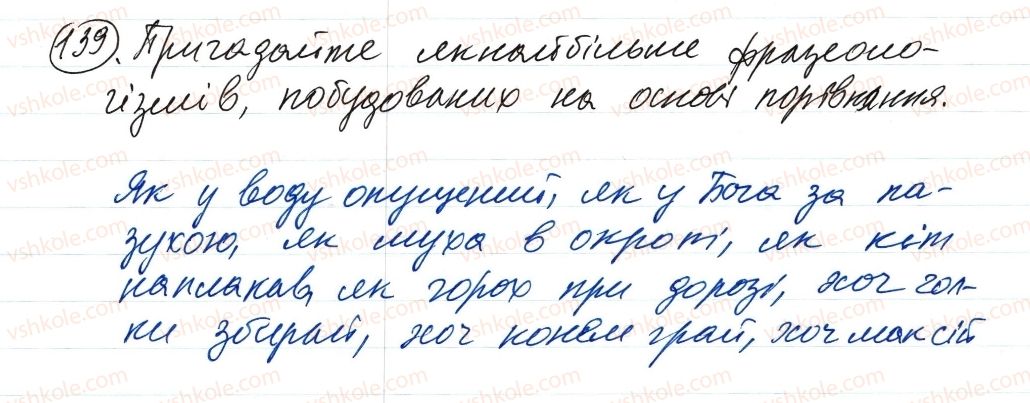 139. Пригадайте якнайбільше фразеоло-
гізмів, побудованих на основі порівняння.
Як у воду опущений, як у Бога за па-
зухою, як муха в окропі, як кіт
наплакав, як горох при дорозі, хоч гол-
ки збирай, хоч конем грай, хоч мак сій